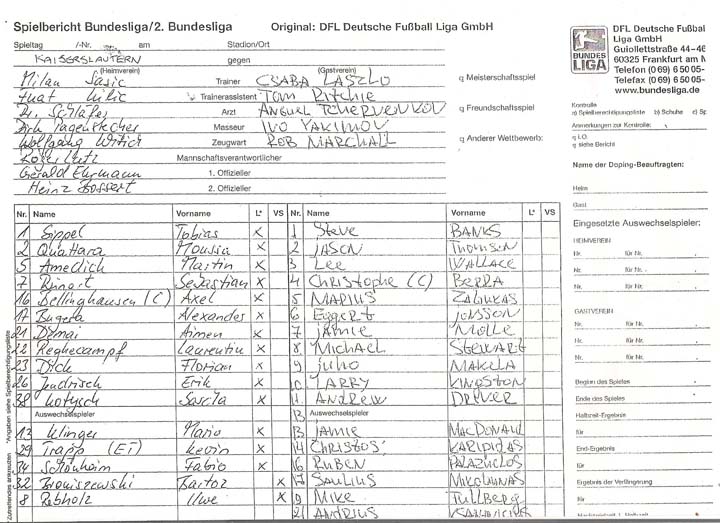 Spielbericht Bundesliga/2. Bundesliga Original: DFL Deutsche Fußball Liga GmbH
Spieltag /-Nr. am Stadion/Ort
KAISERSLAUTERN gegen
(Heimverein) (Gastverein)
Milan Sasic Trainer CSABA LASZLO
Fuat Kilic Trainerassistent TOM RITCHIE
Dr. Schläfer Arzt ANGUEL TCHERVENKOV
Dirk Pagenstecher Masseur IVO YAKIMOV
Wolfgang Wittich Zeugwart ROB MARCHALL
Mannschaftsverantwortlicher
Gerald Ehrmann 1. Offizieller
Heinz Bossert 2. Offizieller
q Meisterschaftsspiel
q Freundschaftsspiel
q Anderer Wettbewerb:
BUNDES LIGA
DFL Deutsche Fußbal
Liga GmbH
Guiollettstraße 44-46
60325 Frankfurt am M
Telefon (069) 6 50 05-
Telefax (069) 6 50 05-
www.bundesliga.de
Kontrolle
a) Spielberechtigungsliste b) Schuhe c) Sp
Anmerkungen zur Kontrolle:
q i.O.
q siehe Bericht
Name der Doping-Beauftragten:
Heim
Gast
Eingesetzte Auswechselspieler:
HEIMVEREIN
Nr. für Nr.
Nr. für Nr.
Nr. für Nr.
GASTVEREIN
Nr. für Nr.
Nr. für Nr.
Nr. für Nr.
Beginn des Spieles
Ende des Spieles
Halbzeit-Ergebnis
für
End-Ergebnis
für
Ergebnis der Verlängerung
für
Nr. Name Vorname L* VS Nr. Name Vorname L* VS
1 Sippel Tobias X 1 Steve BANKS
2 Quattara Moussa X 2 JASON THOMSON
5 Amedick Martin X 3 Lee WALLACE
7 Sebastian X 4 CHRISTOPHE (C) BERRA
16 Bellinghausen (C) Axel X 5 MARIUS ZALIUKAS
17 Bugera Alexander X 6 EGGERT JONSSON
21 Dzmai Aimen X 7 JAMIE MOLLE
22 Reghecampf Laurentiu X 8 MICHAEL STEWART
23 Dick Florian X 9 JUHO MAKELA
26 Jendrisek Erik X 10 LARRY KINGSTON
38 Kotysch Sascha X 11 ANDREW DRIVER
Auswechselspieler Auswechselspieler
13 Klinger Mario X 13 JAMIE MACDONALD
29 Trapp (ET) Kevin X 14 CHRISTOS KARIPIDIS
34 Schönheim Fabio X 16 RUBEN PALAZUELOS
32 Broniszewski Bartoz X 17 SAULIUS MIKOLIUNAS
8 Rebholz Uwe X 19 MIKE TULLBERG
21 ANDRIUS